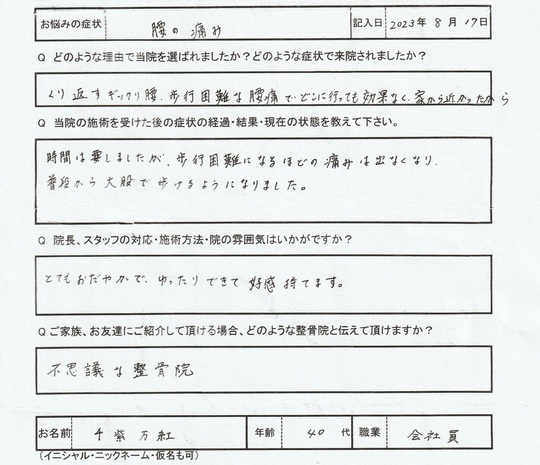 お悩みの症状 腰の痛み 記入日 2023年 8月 17日
Q どのような理由で当院を選ばれましたか？どのような症状で来院されましたか？
くり返すギックリ腰、歩行困難な腰痛でどこに行っても効果なく、家から近かったから
Q 当院の施術を受けた後の症状の経過・結果・現在の状態を教えて下さい。
時間は要しましたが、歩行困難になるほどの痛みは出なくなり、
普段から大股で歩けるようになりました。
Q 院長、スタッフの対応・施術方法・院の雰囲気はいかがですか？
とてもおだやかで、ゆったりできて好感持てます。
Q ご家族、お友達にご紹介して頂ける場合、どのような整骨院と伝えて頂けますか？
不思議な整骨院
お名前 千紫万紅 年齢 40代 職業 会社員
(イニシャル・ニックネーム・仮名も可)